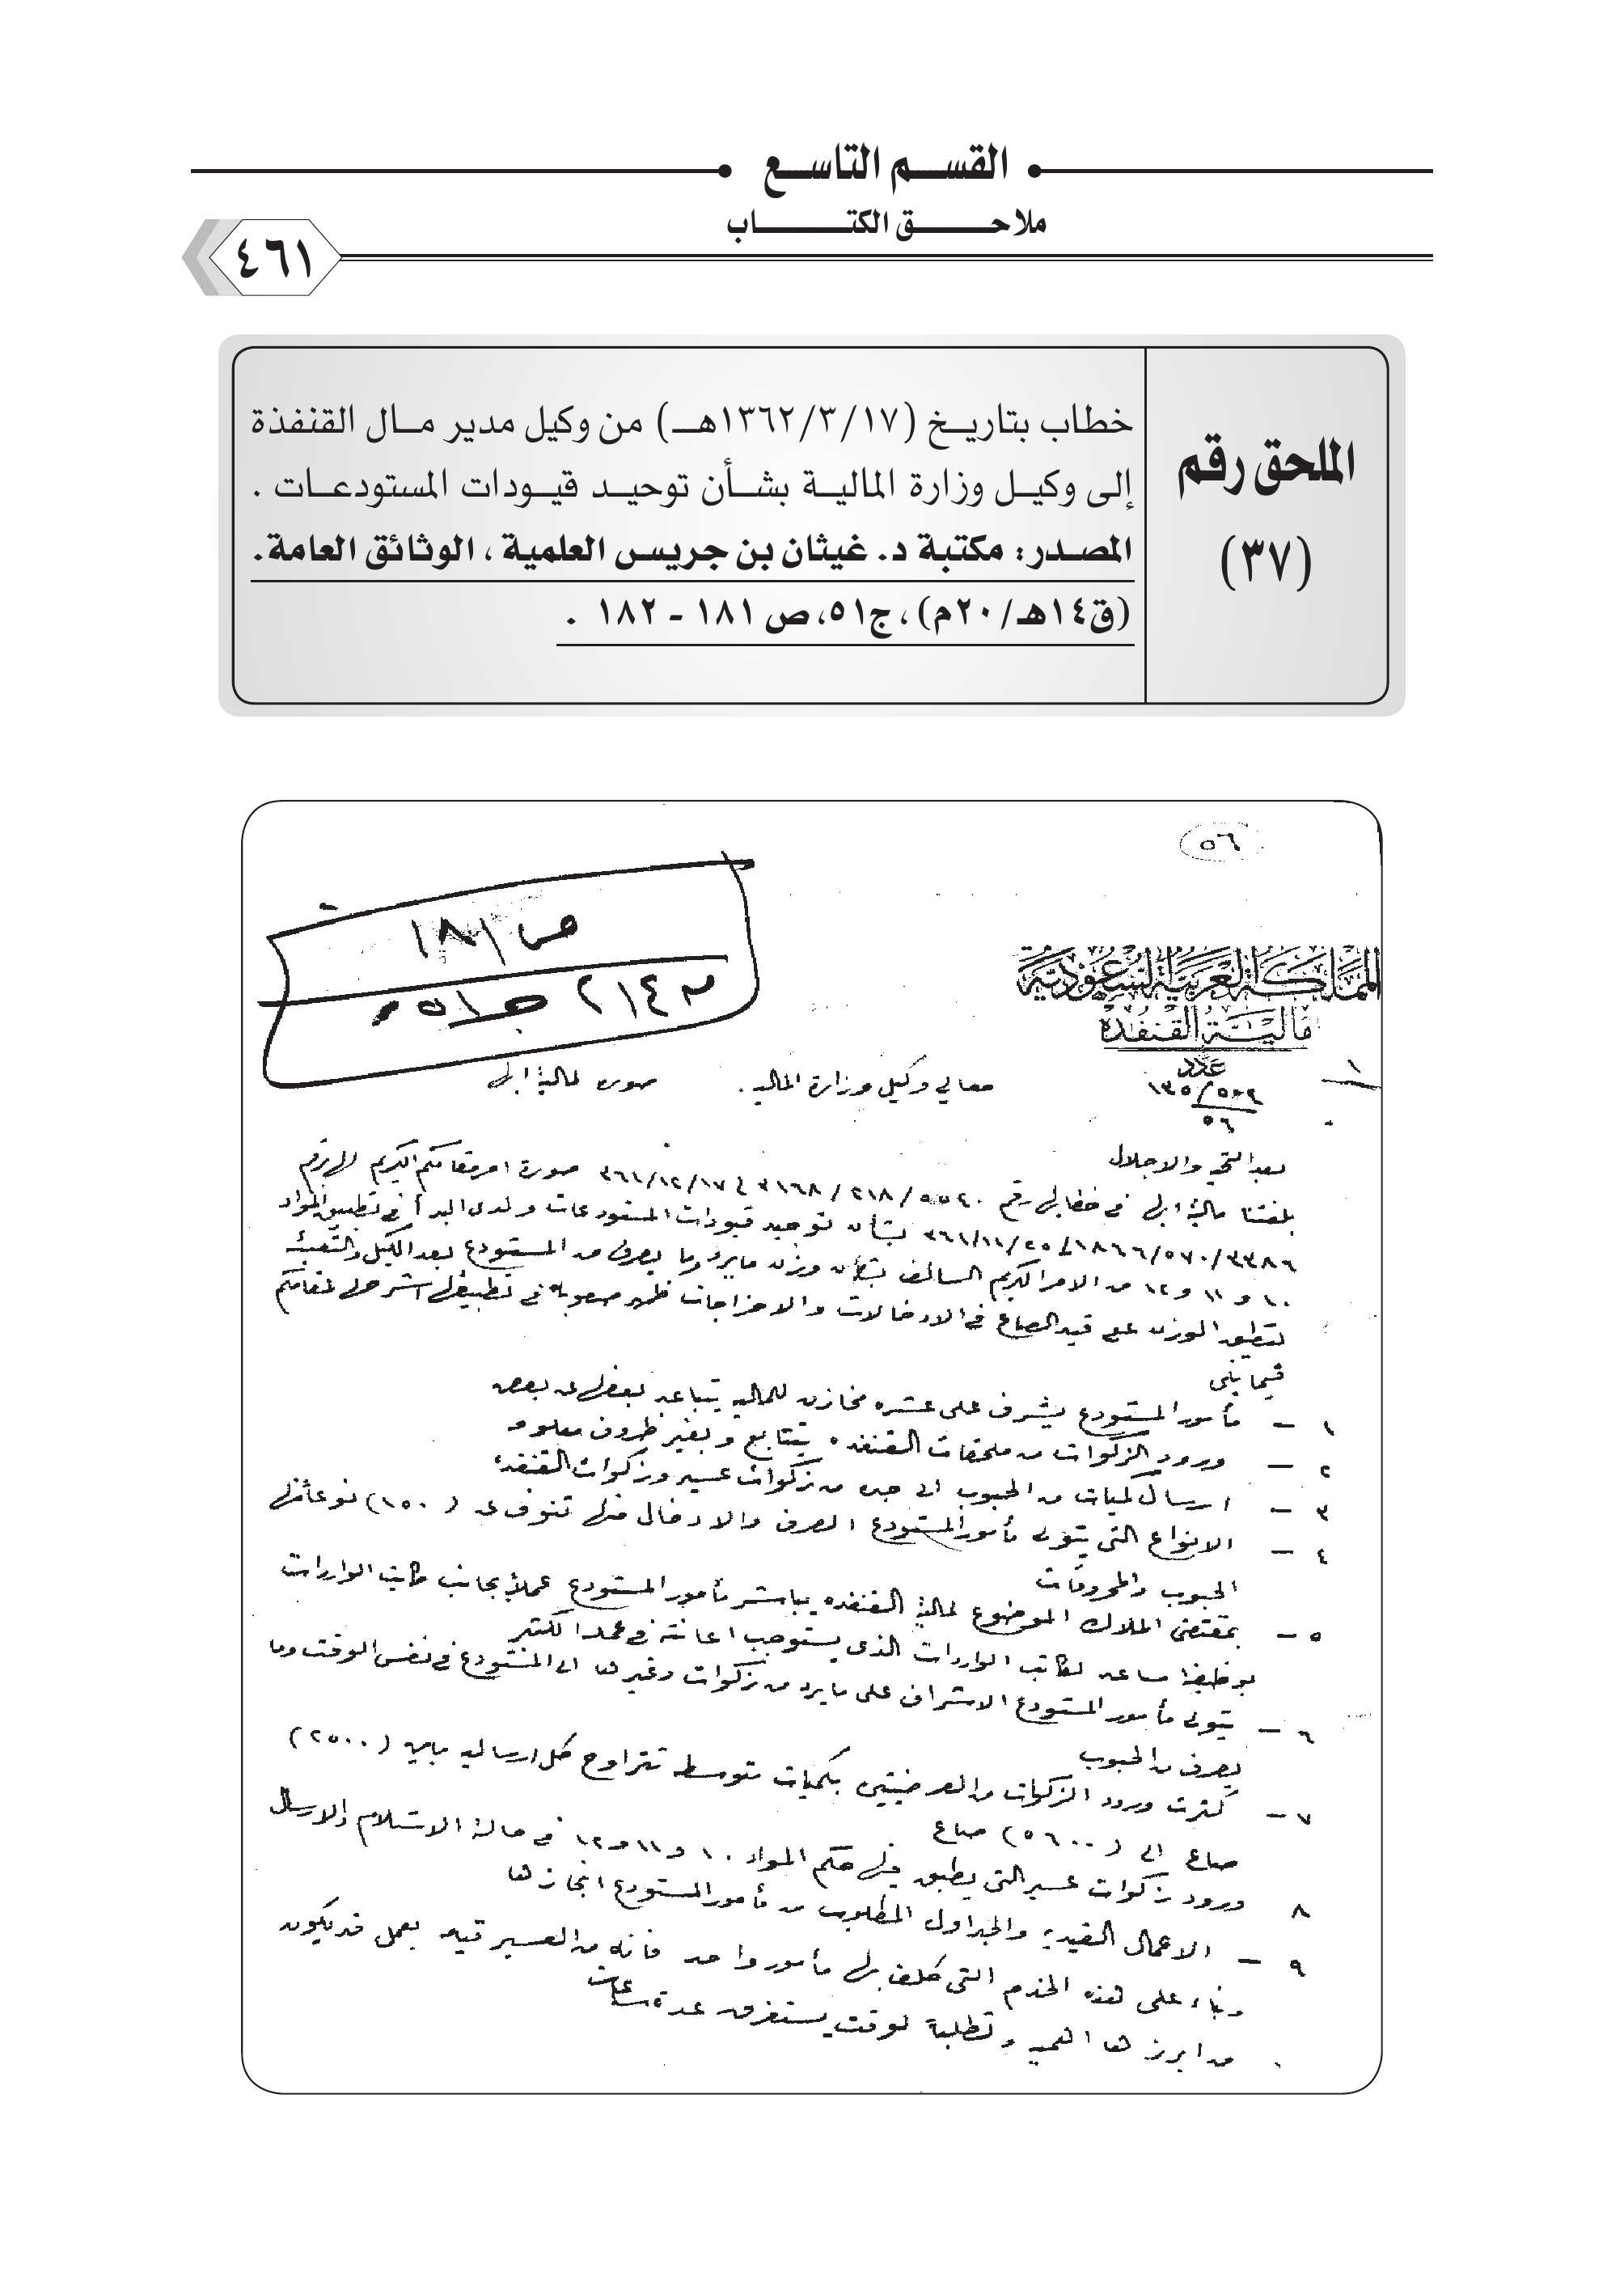 القسم التاسع
ملاحق الكتاب
٤٦١
الملحق رقم
(٣٧)
خطاب بتاريخ (١٣٦٢/٣/١٧هـ) من وكيل مدير مال القنفذة
إلى وكيل وزارة المالية بشأن توحيد قيودات المستودعات .
المصدر: مكتبة د. غيثان بن جريس العلمية ، الوثائق العامة.
(ق١٤هـ/٢٠م) ، ج٥١، ص ١٨١ - ١٨٢ .
٥٦
ص ١٨١
المملكة العربية السعودية
مالية القنفذة
عدد
٥٦
١
معالي وكيل وزارة المالية . صورة لمالية ابها
بعد التحية والاجلال
بلغتنا مالية ابها في خطابها رقم ٣٦١/١٢/١٧ صورة امر مقامكم الكريم الرقم
٣٣٨٦/٥٧٠/١٨٦٦ ٣٦١/١١/٢٥ بشأن توحيد قيودات المستودعات ولدى البدأ في تطبيق المواد
١٠ و ١١ و ١٢ من الامر الكريم السالف بشأن وزن مايرد وما يصرف من المستودع بعد الكيل والتعبئة
الوزن على قيد الصاع في الادخالات والاخراجات ظهر صعوبة في تطبيقها اشرحها لمقامكم
فيما يلي
١ - مأمور المستودع يشرف على عشره مخازن للمالية يتباعد بعضها عن بعض
٢ - ورود الزكوات من ملحقات القنفذه يتتابع وبغير ظروف معلومه
٣ - ارسال كميات من الحبوب الى جده من زكوات عسير وزكوات القنفذة
٤ - الانواع التي يتولى مأمور المستودع الصرف والادخال منها تنوف عن (١٥٠) نوعاً منها
الحبوب والمحروقات
٥ - بمقتضى الملاك الموضوع لمالية القنفذه يباشر مأمور المستودع عملاً بجانب كاتب الواردات
بوظيفة مساعد لكاتب الواردات الذي يستوجب اعانته في عمله الكثير
٦ - يتولى مأمور المستودع الاشراف على مايرد من زكوات وغيرها الى المستودع في نفس الوقت وما
يصرف من الحبوب
٧ - كثرت ورود الزكوات من العرضيتين بكميات متوسطه تتراوح كل ارساليه مابين (٢٥٠٠)
صاع الى (٥٦٠٠) صاع
٨ ورود زكوات عسير التي يطبق فيها حكم المواد ١٠ و ١١ و ١٢ في حالة الاستلام والارسال
٩ - الاعمال القيدية والجداول المطلوب من مأمور المستودع انجازها
وبناء على هذه الخدم التي كلف بها مأمور واحد فانه من العسير قيامه بعمل قد يكون
من ابرزها اهمية وتطلباً لوقت يستغرق عدة ساعات